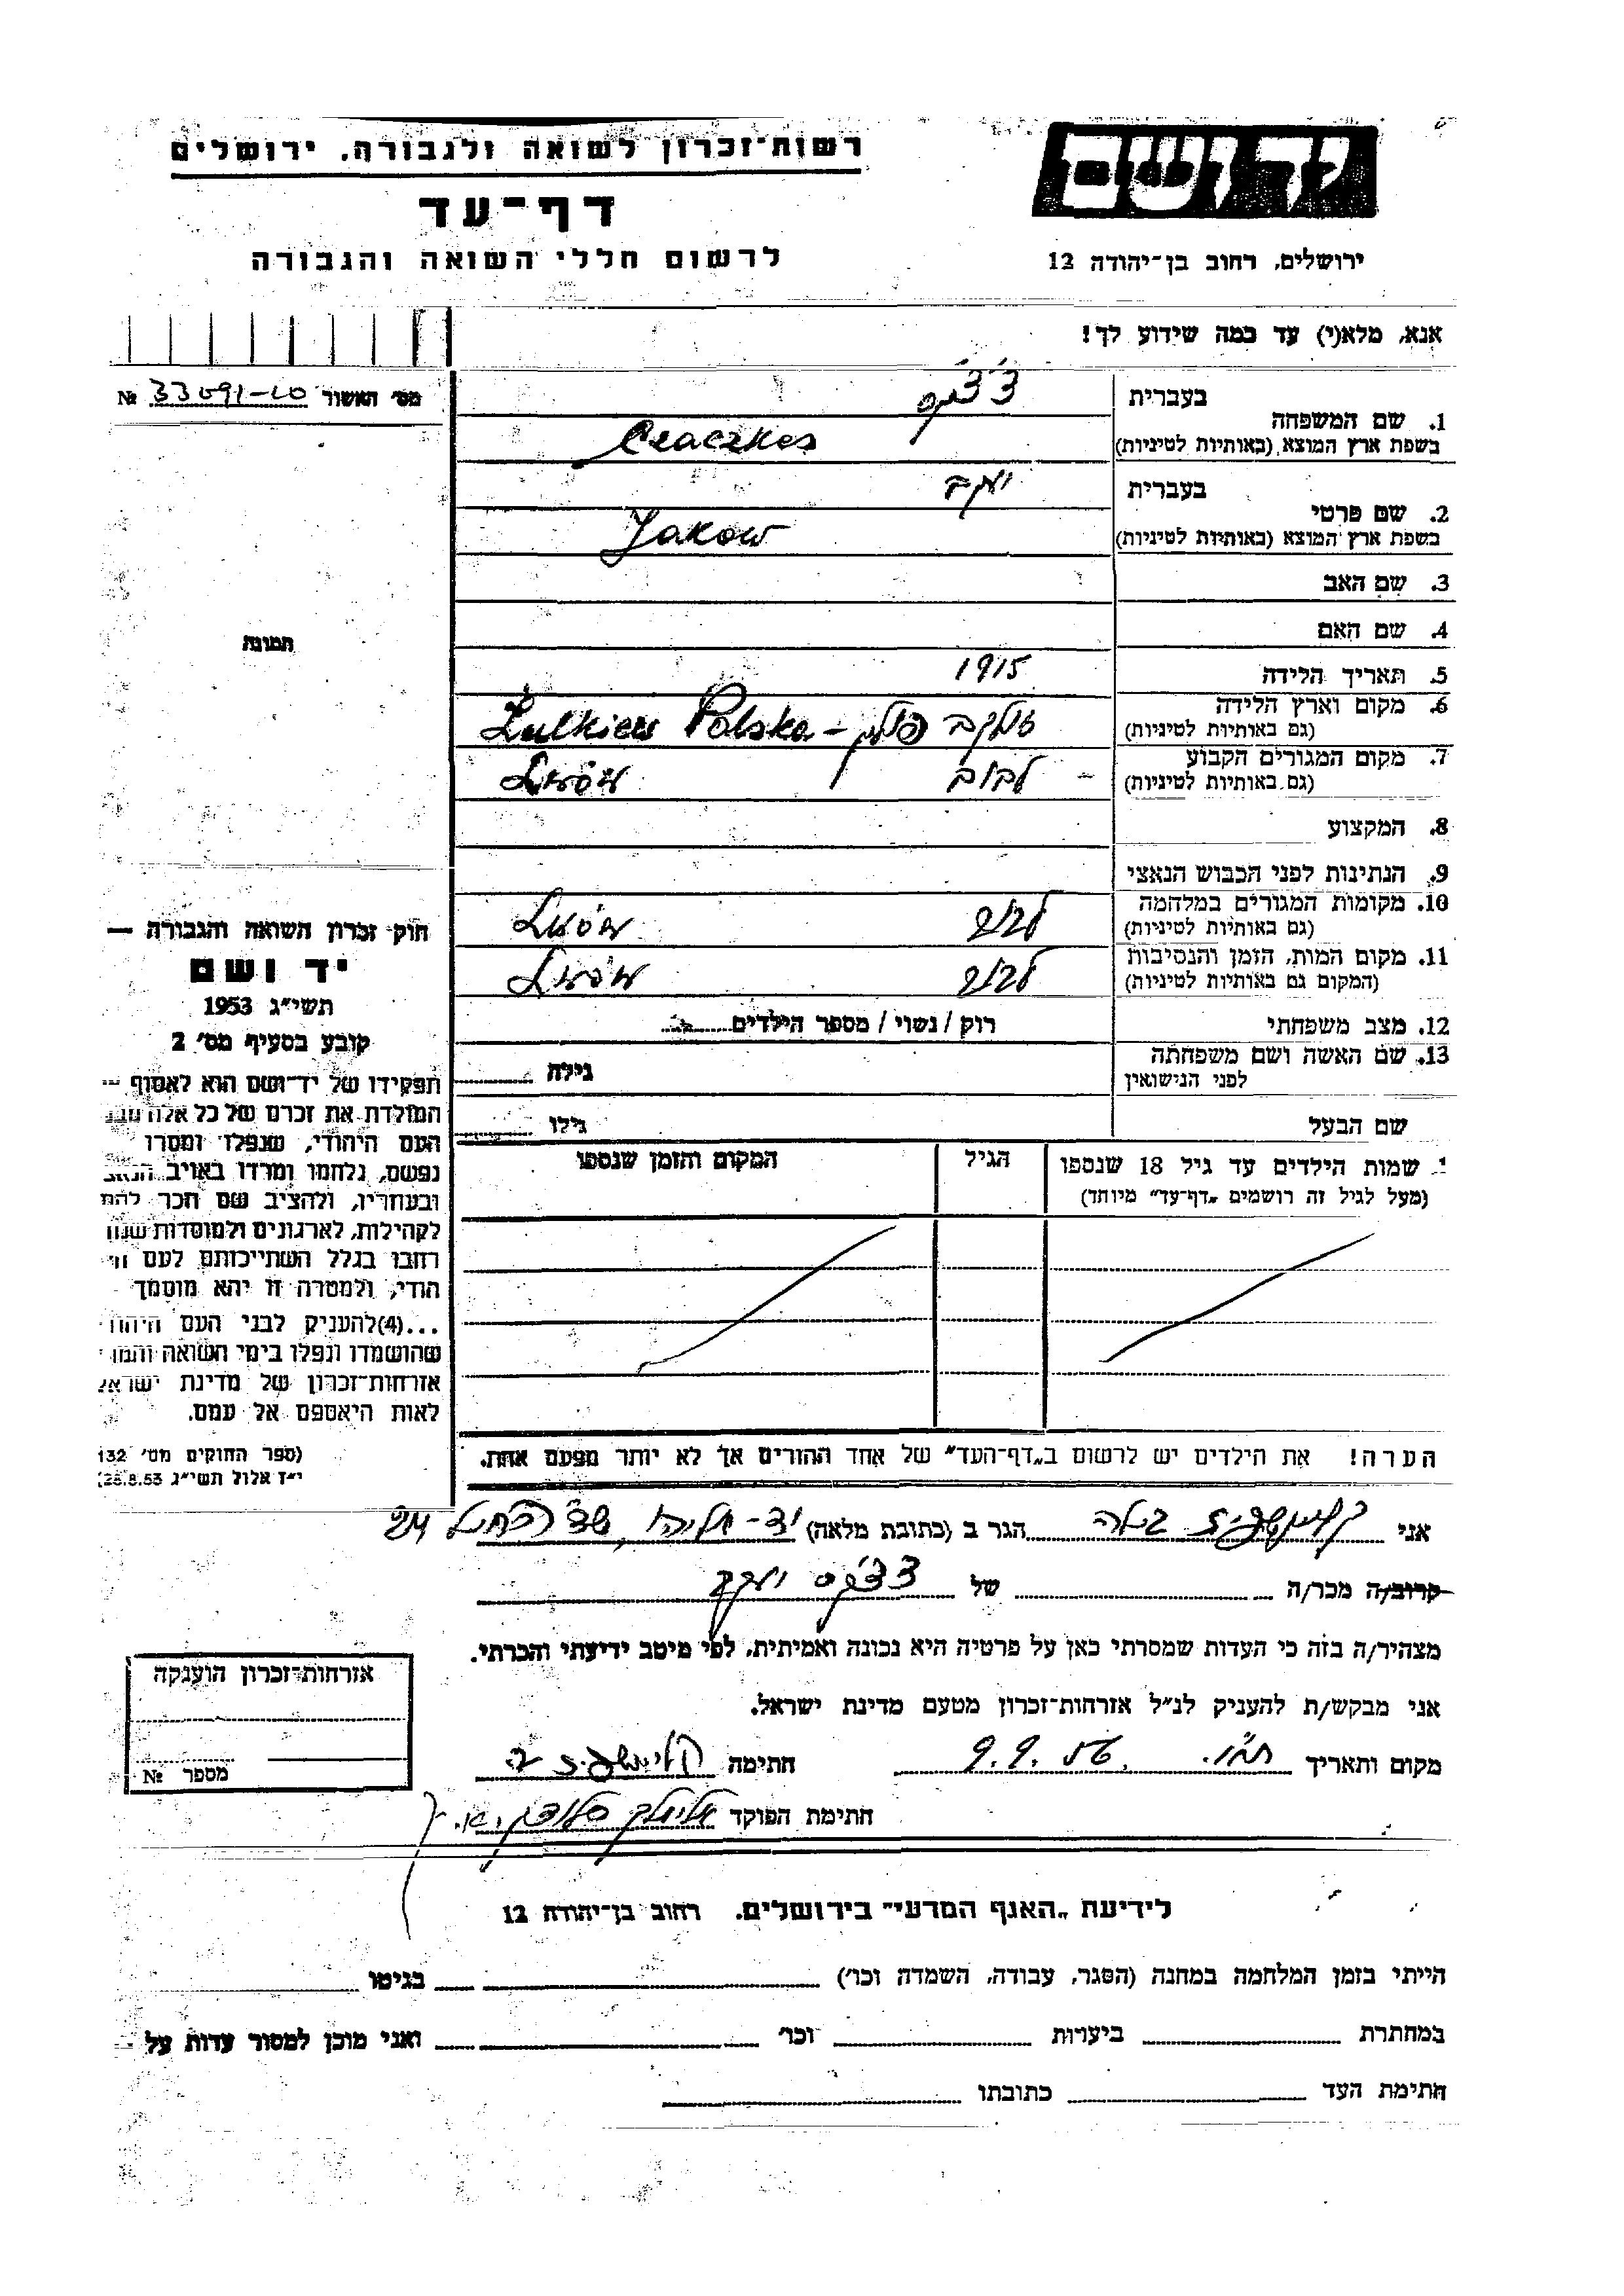 רשות־זכרון לשואה ולגבורה, ירושלים
יד ושם
דף־עד
לרשום חללי השואה והגבורה
ירושלים, רחוב בן־יהודה 12
אנא, מלא(י) עד כמה שידוע לך!
מס׳ האשור № 33091-10
תמונה
1. שם המשפחה בעברית צ׳צ׳קס
בשפת ארץ המוצא (באותיות לטיניות) Czaczkes
2. שם פרטי בעברית יעקב
בשפת ארץ המוצא (באותיות לטיניות) Jakow
3. שם האב
4. שם האם
5. תאריך הלידה 1915
6. מקום וארץ הלידה (גם באותיות לטיניות) זולקב פולין – Zulkiew Polska
7. מקום המגורים הקבוע (גם באותיות לטיניות) לבוב Lwów
8. המקצוע
9. הנתינות לפני הכבוש הנאצי
10. מקומות המגורים במלחמה (גם באותיות לטיניות) לבוב Lwów
11. מקום המות, הזמן והנסיבות (המקום גם באותיות לטיניות) לבוב Lwów
12. מצב משפחתי רוק / נשוי / מספר הילדים
13. שם האשה ושם משפחתה לפני הנישואין גילה
שם הבעל גילו
שמות הילדים עד גיל 18 שנספו
(מעל לגיל זה רושמים „דף־עד״ מיוחד)
הגיל
המקום והזמן שנספו
הערה! את הילדים יש לרשום ב„דף־העד״ של אחד ההורים אך לא יותר מפעם אחת.
חוק זכרון השואה והגבורה —
יד ושם
תשי״ג 1953
קובע בסעיף מס׳ 2
תפקידו של יד־ושם הוא לאסוף
המולדת את זכרם של כל אלה מבני
העם היהודי, שנפלו ומסרו
נפשם, נלחמו ומרדו באויב הנאצי
ובעוזריו, ולהציב שם וזכר להם
לקהילות, לארגונים ולמוסדות שנח
רחבו בגלל השתייכותם לעם הי
הודי, ולמטרה זו יהא מוסמך
...(4)להעניק לבני העם היהודי
שהושמדו ונפלו בימי השואה והמרי
אזרחות־זכרון של מדינת ישראל
לאות היאספם אל עמם.
(ספר החוקים מס׳ 132
י״ז אלול תשי״ג 28.8.53)
אני בלה הגר ב (כתובת מלאה) יד-אליהו,
קרוב/ה מכר/ה של צ׳צ׳קס יעקב
מצהיר/ה בזה כי העדות שמסרתי כאן על פרטיה היא נכונה ואמיתית, לפי מיטב ידיעתי והכרתי.
אני מבקש/ת להעניק לנ״ל אזרחות־זכרון מטעם מדינת ישראל.
מקום ותאריך 9.9.56 חתימה
חתימת הפוקד
אזרחות־זכרון הוענקה
מספר №
לידיעת „האגף המדעי״ בירושלים, רחוב בן־יהודה 12
הייתי בזמן המלחמה במחנה (הסגר, עבודה, השמדה וכו׳) בגיטו
במחתרת ביערות וכו׳ ואני מוכן למסור עדות על
חתימת העד כתובתו